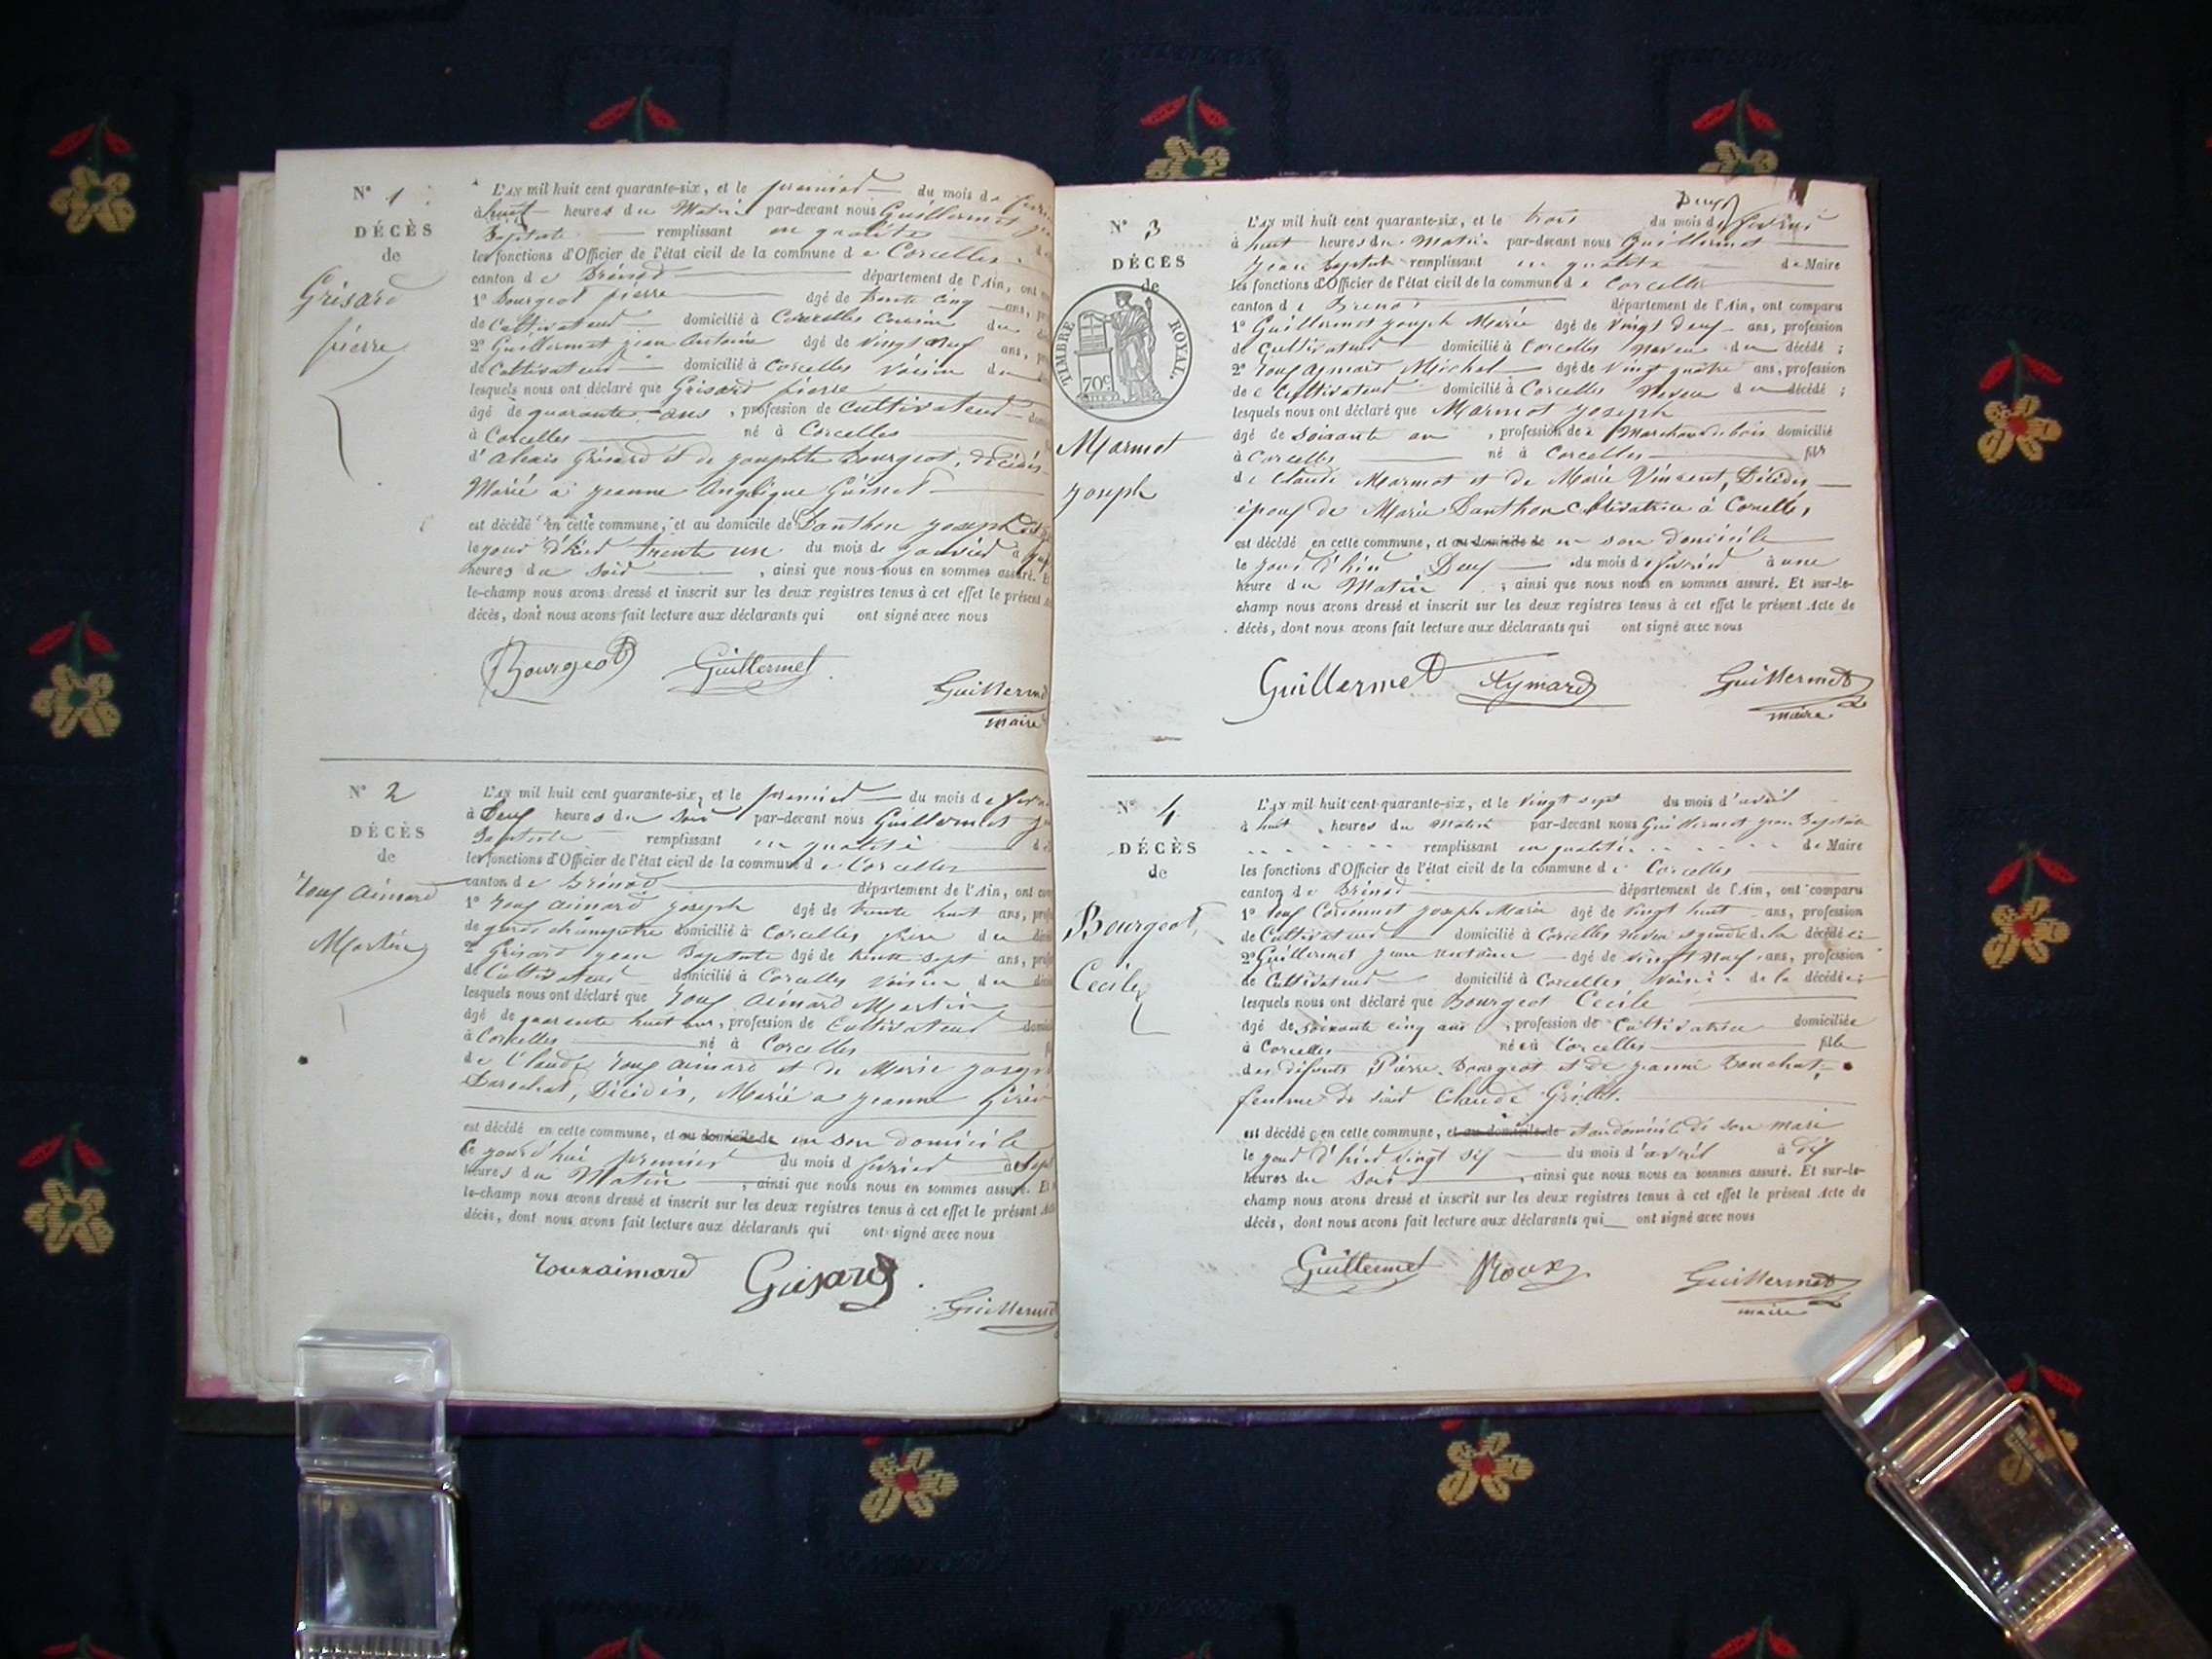 N° 1
DÉCÈS
de
Grisard
pierre
L'AN mil huit cent quarante-six, et le premier du mois de
à huit heures du Matin par-devant nous Guillermet
Baptiste remplissant en qualité
les fonctions d'Officier de l'état civil de la commune de Corcelles
canton de Brénod département de l'Ain, ont
1° Bourgeot pierre âgé de trente cinq ans,
de Cultivateur domicilié à Corcelles Cousin du
2° Guillermet jean Antoine âgé de vingt neuf ans,
de Cultivateur domicilié à Corcelles Voisin du
lesquels nous ont déclaré que Grisard pierre
âgé de quarante ans, profession de Cultivateur
à Corcelles né à Corcelles
d' Grisard et de Bourgeot, décédés
Marié à jeanne Angélique Guinet
est décédé en cette commune, et au domicile de Danthon joseph
le jour d'hier trente un du mois de janvier à
heures du Soir, ainsi que nous nous en sommes assuré. Et
le-champ nous avons dressé et inscrit sur les deux registres tenus à cet effet le présent
décès, dont nous avons fait lecture aux déclarants qui ont signé avec nous
Bourgeot Guillermet
Guillermet
maire
N° 2
DÉCÈS
de
roux aimard
Martin
L'AN mil huit cent quarante-six, et le premier du mois de
à Deux heures du Soir par-devant nous Guillermet
Baptiste remplissant en qualité
les fonctions d'Officier de l'état civil de la commune de Corcelles
canton de Brénod département de l'Ain, ont
1° roux aimard joseph âgé de trente huit ans,
de garde champetre domicilié à Corcelles frère du
2° Grisard jean Baptiste âgé de trente sept ans,
de Cultivateur domicilié à Corcelles Voisin du
lesquels nous ont déclaré que roux aimard Martin
âgé de quarante huit ans, profession de Cultivateur
à Corcelles né à Corcelles
de Claude roux aimard et de Marie
Décédés, Marié à jeanne
est décédé en cette commune, et au domicile de en son domicile
le jourd'hui premier du mois de février à Sept
heures du Matin, ainsi que nous nous en sommes assuré. Et
le-champ nous avons dressé et inscrit sur les deux registres tenus à cet effet le présent
décès, dont nous avons fait lecture aux déclarants qui ont signé avec nous
rouxaimard Grisard
Guillermet
N° 3
DÉCÈS
de
TIMBRE ROYAL.
70c
Marmet
joseph
Deux
L'AN mil huit cent quarante-six, et le trois du mois de février
à huit heures du Matin par-devant nous Guillermet
jean Baptiste remplissant en qualité de Maire
les fonctions d'Officier de l'état civil de la commune de Corcelles
canton de Brenod département de l'Ain, ont comparu
1° Guillermet joseph Marie âgé de vingt deux ans, profession
de Cultivateur domicilié à Corcelles Neveu du décédé ;
2° roux aymard Michel âgé de vingt quatre ans, profession
de Cultivateur domicilié à Corcelles Neveu du décédé ;
lesquels nous ont déclaré que Marmet joseph
âgé de soixante an, profession de Marchand de bois domicilié
à Corcelles né à Corcelles fils
de Claude Marmet et de Marie Vincent, Décédés
époux de Marie Danthon Cultivatrice à Corcelles,
est décédé en cette commune, et au domicile de en son domicile
le jour d'hier Deux du mois de février à une
heure du Matin, ainsi que nous nous en sommes assuré. Et sur-le-
champ nous avons dressé et inscrit sur les deux registres tenus à cet effet le présent Acte de
décès, dont nous avons fait lecture aux déclarants qui ont signé avec nous
Guillermet Aymard Guillermet
maire
N° 4
DÉCÈS
de
Bourgeot,
Cécile
L'AN mil huit cent quarante-six, et le vingt sept du mois d'avril
à huit heures du matin par-devant nous Guillermet jean Baptiste
remplissant en qualité de Maire
les fonctions d'Officier de l'état civil de la commune de Corcelles
canton de Brénod département de l'Ain, ont comparu
1° roux joseph Marie âgé de vingt huit ans, profession
de Cultivateur domicilié à Corcelles neveu et gendre de la décédée
2° Guillermet jean antoine âgé de vingt neuf ans, profession
de Cultivateur domicilié à Corcelles voisin de la décédée
lesquels nous ont déclaré que Bourgeot Cecile
âgé de soixante cinq ans, profession de Cultivatrice domiciliée
à Corcelles née à Corcelles fille
des défunts Pierre Bourgeot et de jeanne
femme de Claude Grillet.
est décédée en cette commune, et au domicile de et au domicile de son mari
le jour d'hier vingt six du mois d'avril à dix
heures du Soir, ainsi que nous nous en sommes assuré. Et sur-le-
champ nous avons dressé et inscrit sur les deux registres tenus à cet effet le présent Acte de
décès, dont nous avons fait lecture aux déclarants qui ont signé avec nous
Guillermet Roux Guillermet
maire